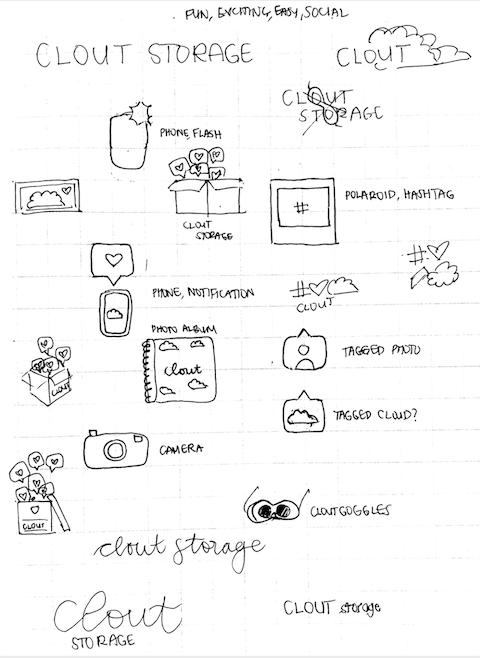 FUN, EXCITING, EASY, SOCIAL
CLOUT STORAGE
CLOUT
CLOUT
STORAGE
PHONE, FLASH
CLOUT
STORAGE
#
POLAROID, HASHTAG
#
PHONE, NOTIFICATION
#
CLOUT
PHOTO ALBUM
clout
TAGGED PHOTO
CLOUT
TAGGED CLOUD?
CAMERA
CLOUT
CLOUTGOGGLES
clout storage
clout
STORAGE
CLOUT storage